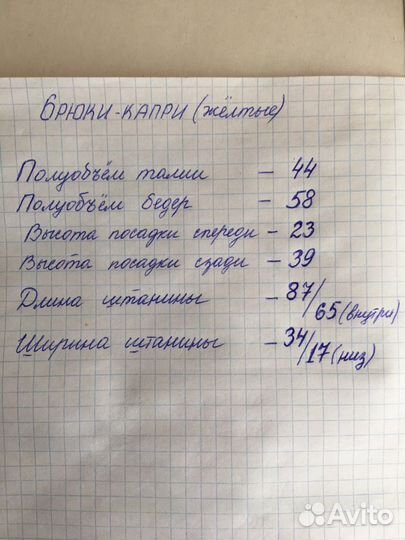 БРЮКИ-КАПРИ (жёлтые)
Полуобъём талии — 44
Полуобъём бедер — 58
Высота посадки спереди — 23
Высота посадки сзади — 39
Длина штанины — 87/65 (внутри)
Ширина штанины — 34/17 (низ)
Avito